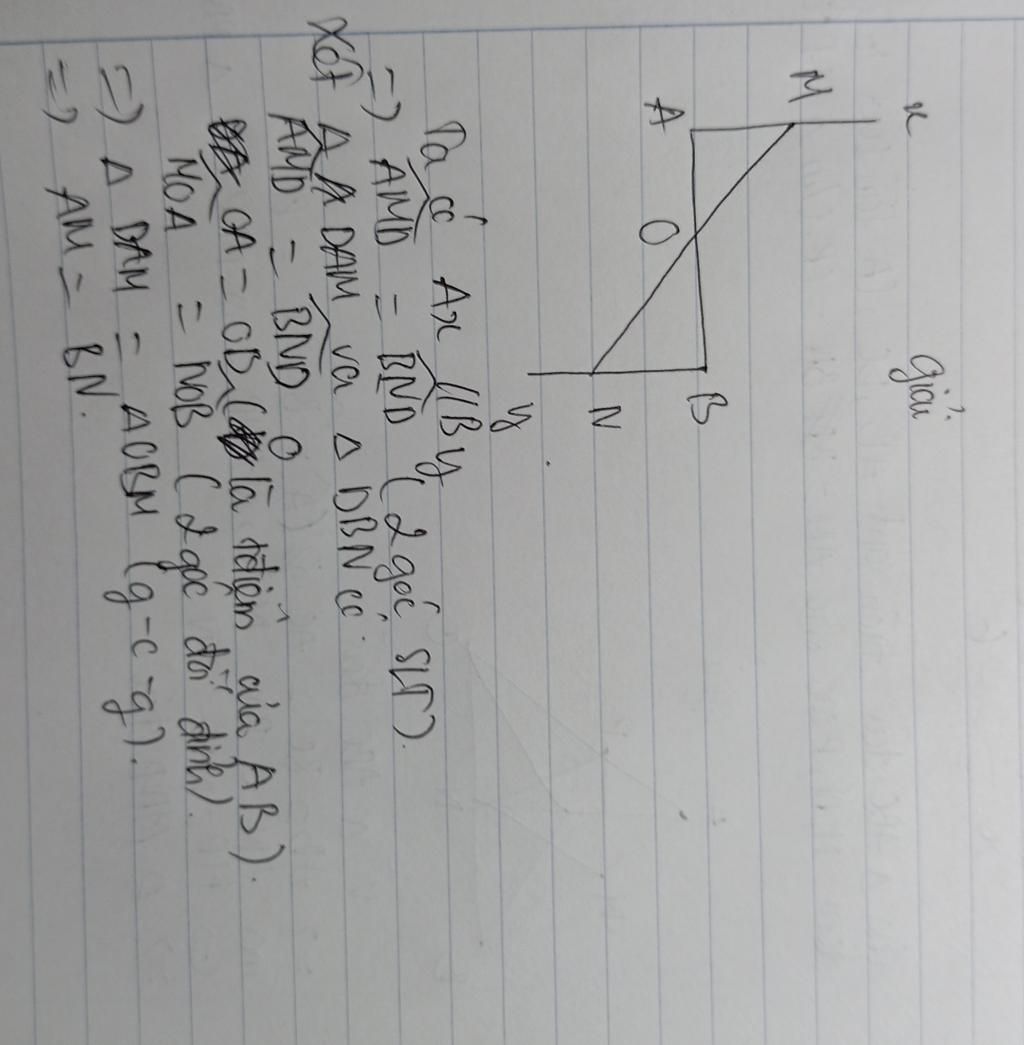 Giải
x
M
A
O
B
N
y
Ta có Ax // By
=) AMD = BND (2 góc SLT).
Xét Δ DAM và Δ DBN có:
AMD = BND
OA = OB (O là tđiểm của AB).
MOA = NOB (2 góc đối đỉnh).
=) Δ DAM = ΔOBM (g-c-g).
=) AM = BN.